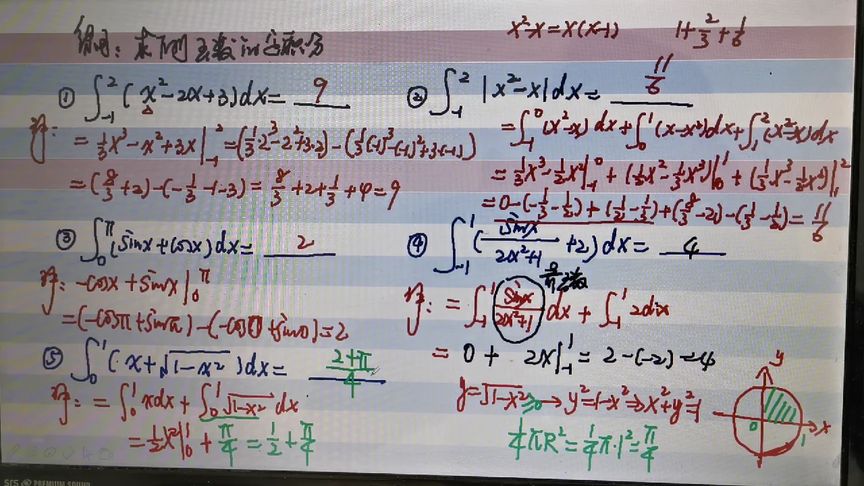 例1：求下列函数的定积分
x²-x=x(x-1)
1+2/3+1/6
① ∫₋₁² (x²-2x+3)dx= 9
解: =1/3x³-x²+3x|₋₁²=(1/3·2³-2²+3·2)-(1/3(-1)³-(-1)²+3·(-1))
=(8/3+2)-(-1/3-1-3)=8/3+2+1/3+4=9
② ∫₋₁² |x²-x|dx= 11/6
=∫₋₁⁰(x²-x)dx+∫₀¹(x-x²)dx+∫₁²(x²-x)dx
=1/3x³-1/2x²|₋₁⁰+(1/2x²-1/3x³)|₀¹+(1/3x³-1/2x²)|₁²
=0-(-1/3-1/2)+(1/2-1/3)+(8/3-2)-(1/3-1/2)=11/6
③ ∫₀^π(sinx+cosx)dx= 2
解: -cosx+sinx|₀^π
=(-cosπ+sinπ)-(-cos0+sin0)=2
④ ∫₋₁¹(sinx/(2x²+1)+2)dx= 4
奇函数
解: =∫₋₁¹ sinx/(2x²+1) dx+∫₋₁¹2dx
=0+2x|₋₁¹=2-(-2)=4
⑤ ∫₀¹(x+√(1-x²))dx= (2+π)/4
解: =∫₀¹xdx+∫₀¹√(1-x²)dx
=1/2x²|₀¹+π/4=1/2+π/4
y=√(1-x²)≥0→y²=1-x²⇒x²+y²=1
1/4πR²=1/4π·1²=π/4
y
0
1
x